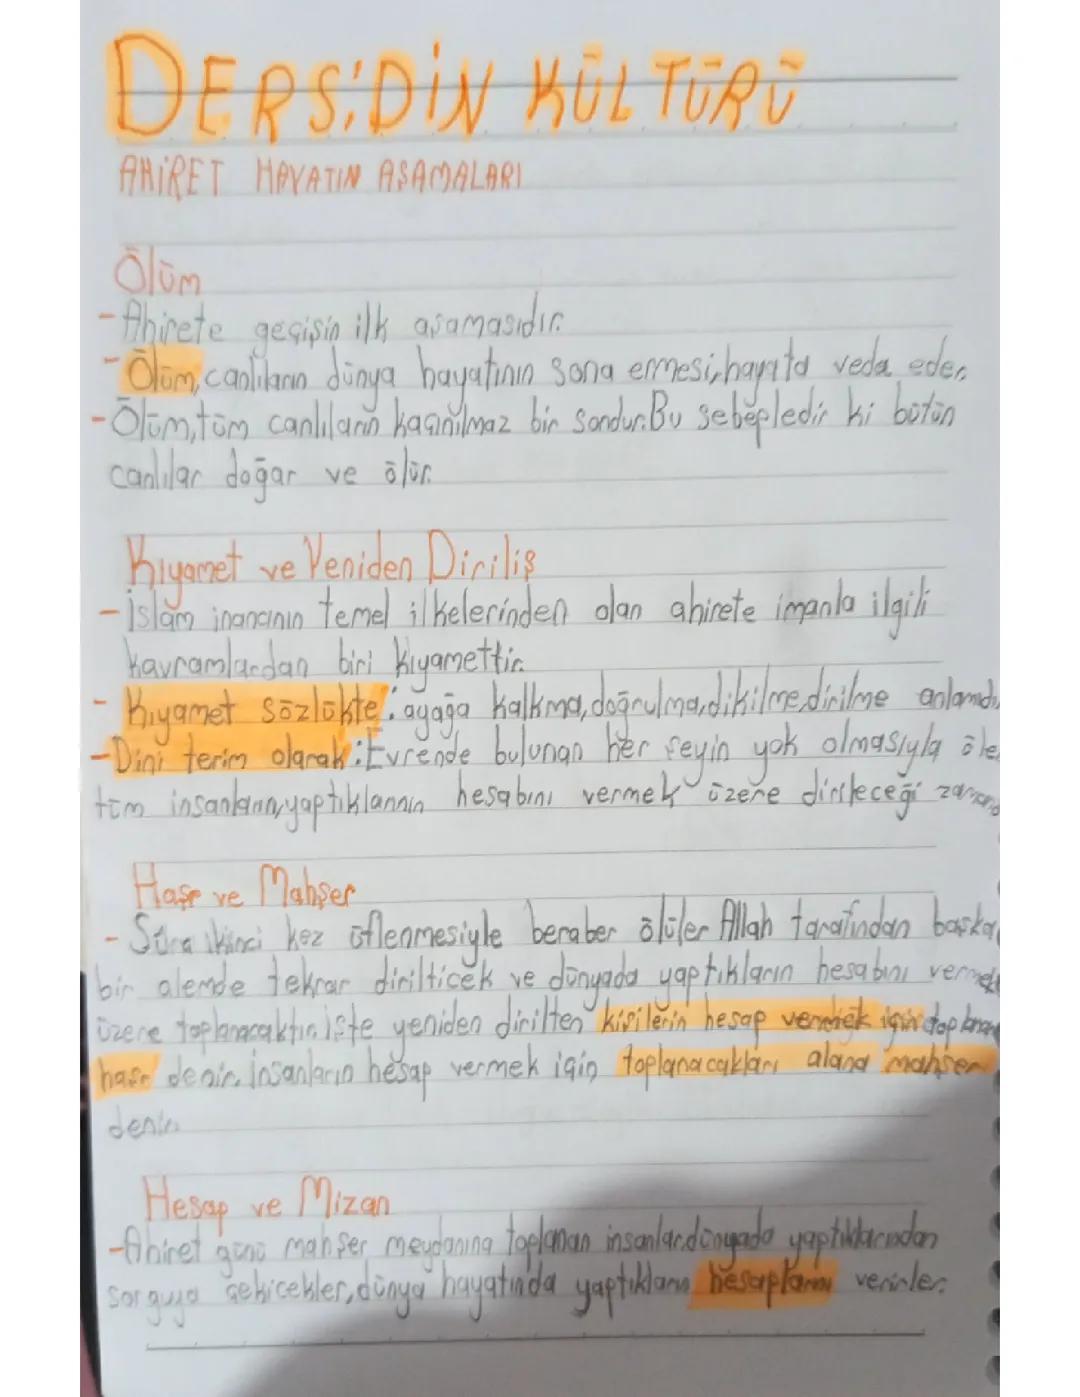 DERS:DİN KÜLTÜRÜ
AHİRET HAYATIN AŞAMALARI
Ölüm
- Ahirete geçişin ilk aşamasıdır.
- Ölüm, canlıların dünya hayatının sona ermesi, hayata veda eder.
- Ölüm, tüm canlıların kaçınılmaz bir sondur. Bu sebepledir ki bütün
canlılar doğar ve ölür.
Kıyamet ve Yeniden Diriliş
- İslam inancının temel ilkelerinden olan ahirete imanla ilgili
kavramlardan biri kıyamettir.
- Kıyamet sözlükte: ayağa kalkma, doğrulma, dikilme, dirilme anlamdı
- Dini terim olarak: Evrende bulunan her şeyin yok olmasıyla öle
tüm insanların, yaptıklarının hesabını vermek üzere dirileceği
Haşr ve Mahşer
- Sûra ikinci kez üflenmesiyle beraber ölüler Allah tarafından başka
bir alemde tekrar dirilticek ve dünyada yaptıkların hesabını vermek
üzere toplanacaktır. işte yeniden dirilten kişilerin hesap vermek için
haşr denir. İnsanların hesap vermek için toplanacakları alana mahşer
denir.
Hesap ve Mizan
- Ahiret günü mahşer meydanına toplanan insanlar, dünyada yaptıklarından
sorguya çekicekler, dünya hayatında yaptıkların hesaplarını verirler.